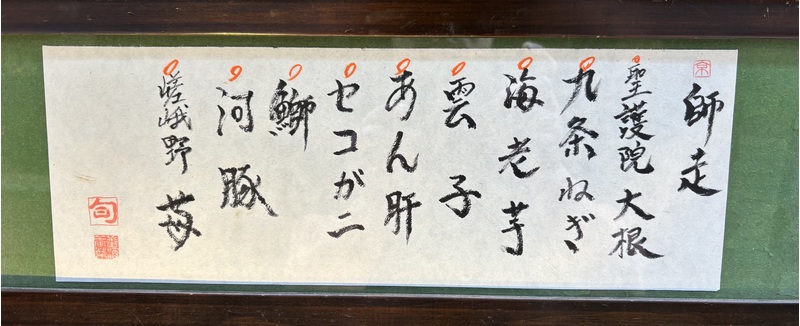 京
師走
聖護院大根
九条ねぎ
海老芋
雲子
あん肝
セコガニ
鰤
河豚
嵯峨野 苺
旬